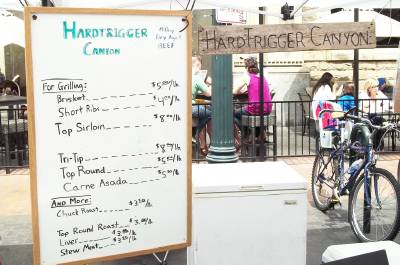 HARDTRIGGER
CANYON
BEEF
HARDTRIGGER CANYON
For Grilling:
Brisket $5.00/lb
Short Ribs $4.00/lb
Top Sirloin $8.00/lb
Tri-Tip $8.00/lb
Top Round $5.50/lb
Carne Asada $5.00/lb
And More:
Chuck Roast $3.50/lb
Top Round Roast $3.00/lb
Liver $3.00/lb
Stew Meat $3.50/lb